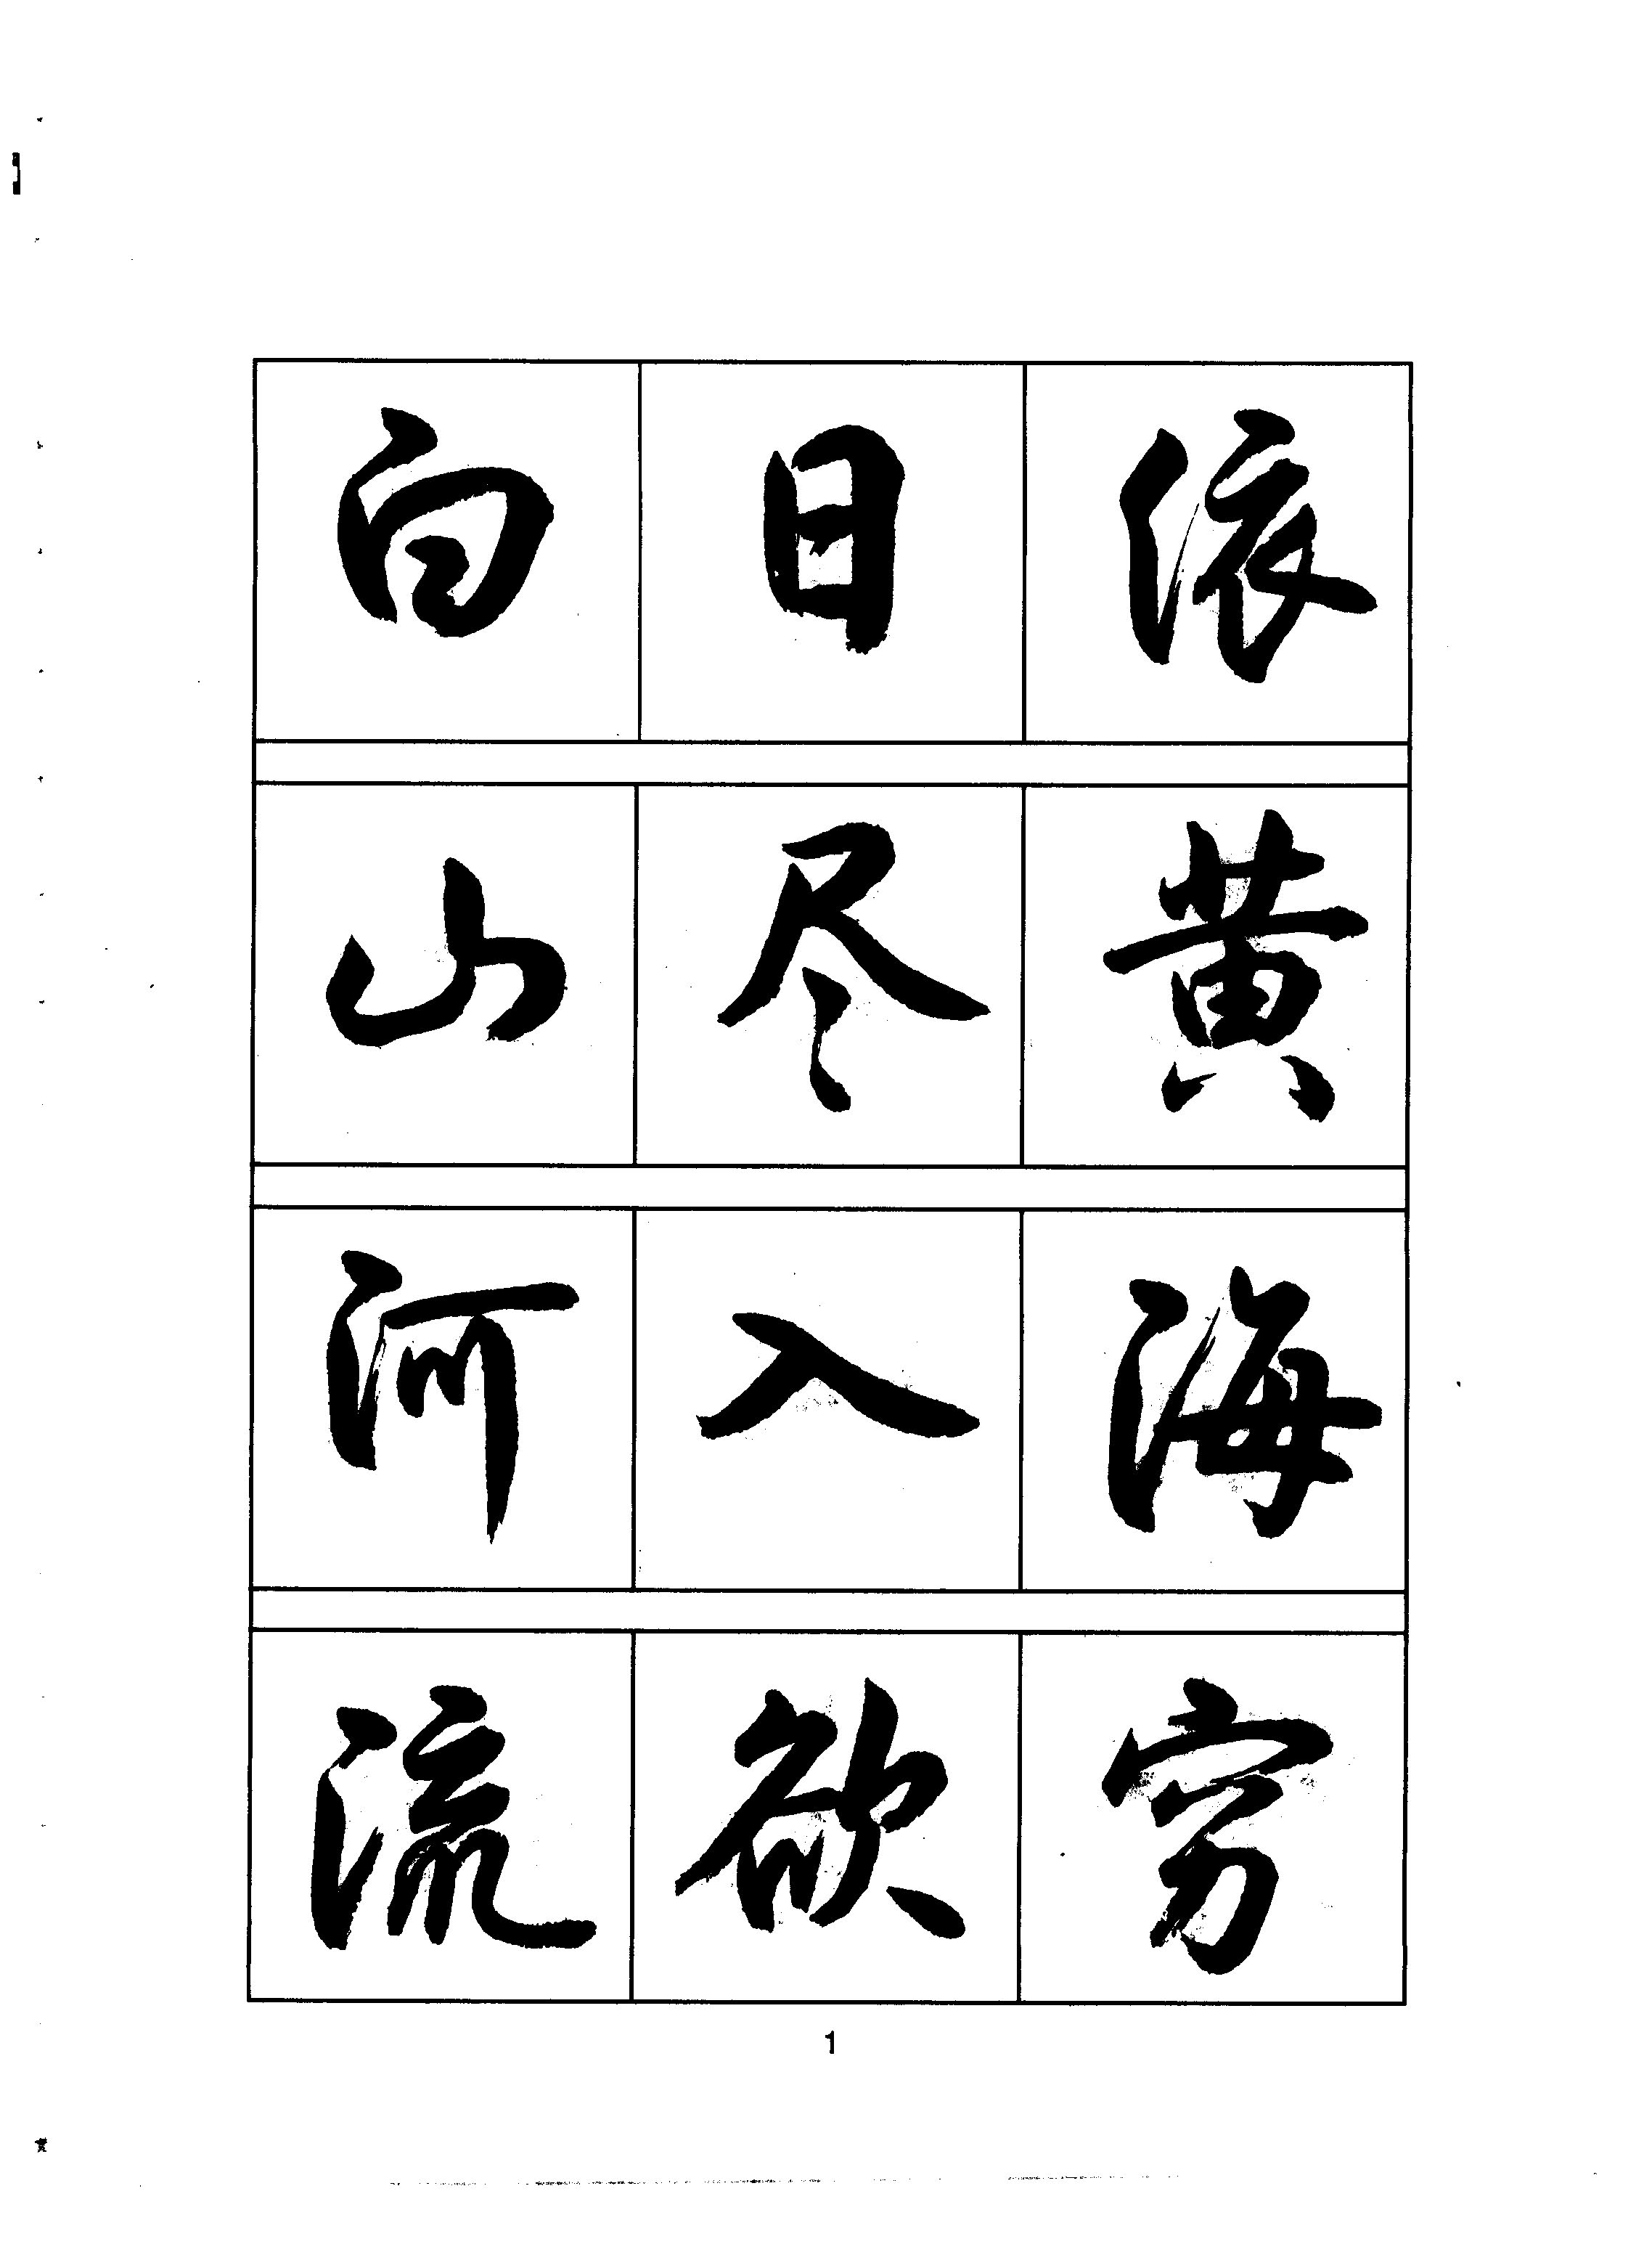 白日依
山尽黄
河入海
流欲穷
1